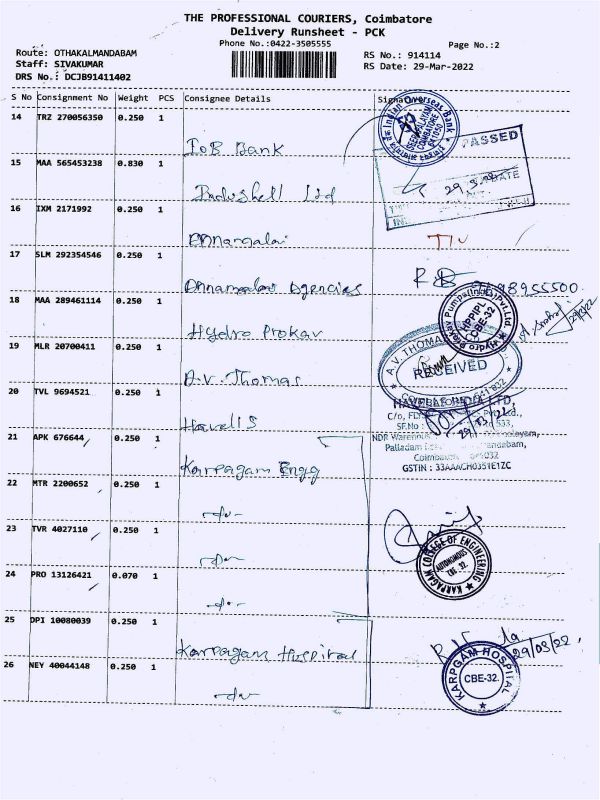 THE PROFESSIONAL COURIERS, Coimbatore
Delivery Runsheet - PCK
Phone No.:0422-3505555
Page No.:2
Route: OTHAKALMANDABAM
Staff: SIVAKUMAR
DRS No.: DCJB91411402
RS No.: 914114
RS Date: 29-Mar-2022
S No Consignment No Weight PCS Consignee Details
14 TRZ 270056350 0.250 1 IOB Bank
Indian Overseas Bank
COIMBATORE
641050
PASSED
DATE
15 MAA 565453238 0.830 1 Indushell Ltd
16 IXM 2171992 0.250 1 Annamalai
17 SLM 292354546 0.250 1 Annamalai Agencies
18 MAA 289461114 0.250 1 Hydro Prokav
HPPIPL
CBE-32
19 MLR 20700411 0.250 1 A.V. Thomas
A.V. THOMAS
RECEIVED
20 TVL 9694521 0.250 1 Havells
C/o,
SF.No :
NDR Warehous
Palladam
GSTIN : 33AAACH0351E1ZC
21 APK 676644 0.250 1 Karpagam Engg
22 MTR 2200652 0.250 1 -do-
23 TVR 4027110 0.250 1 -do-
KARPAGAM COLLEGE OF ENGINEERING
AUTONOMOUS
CBE-32.
24 PRO 13126421 0.070 1 -do-
25 DPI 10080039 0.250 1 Karpagam Hospital
29/03/22
26 NEY 40044148 0.250 1 -do-
KARPGAM HOSPITAL
CBE-32.